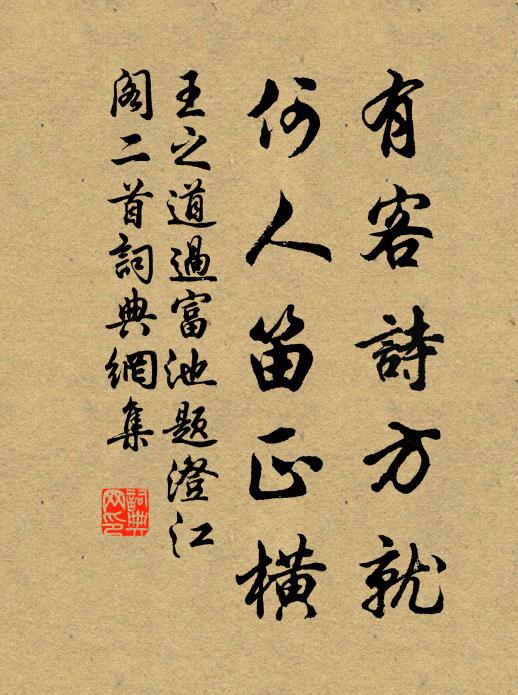 有客詩方就
何人笛正橫
王之道過富池题澄江
阁二首詞典網集
詞典網印